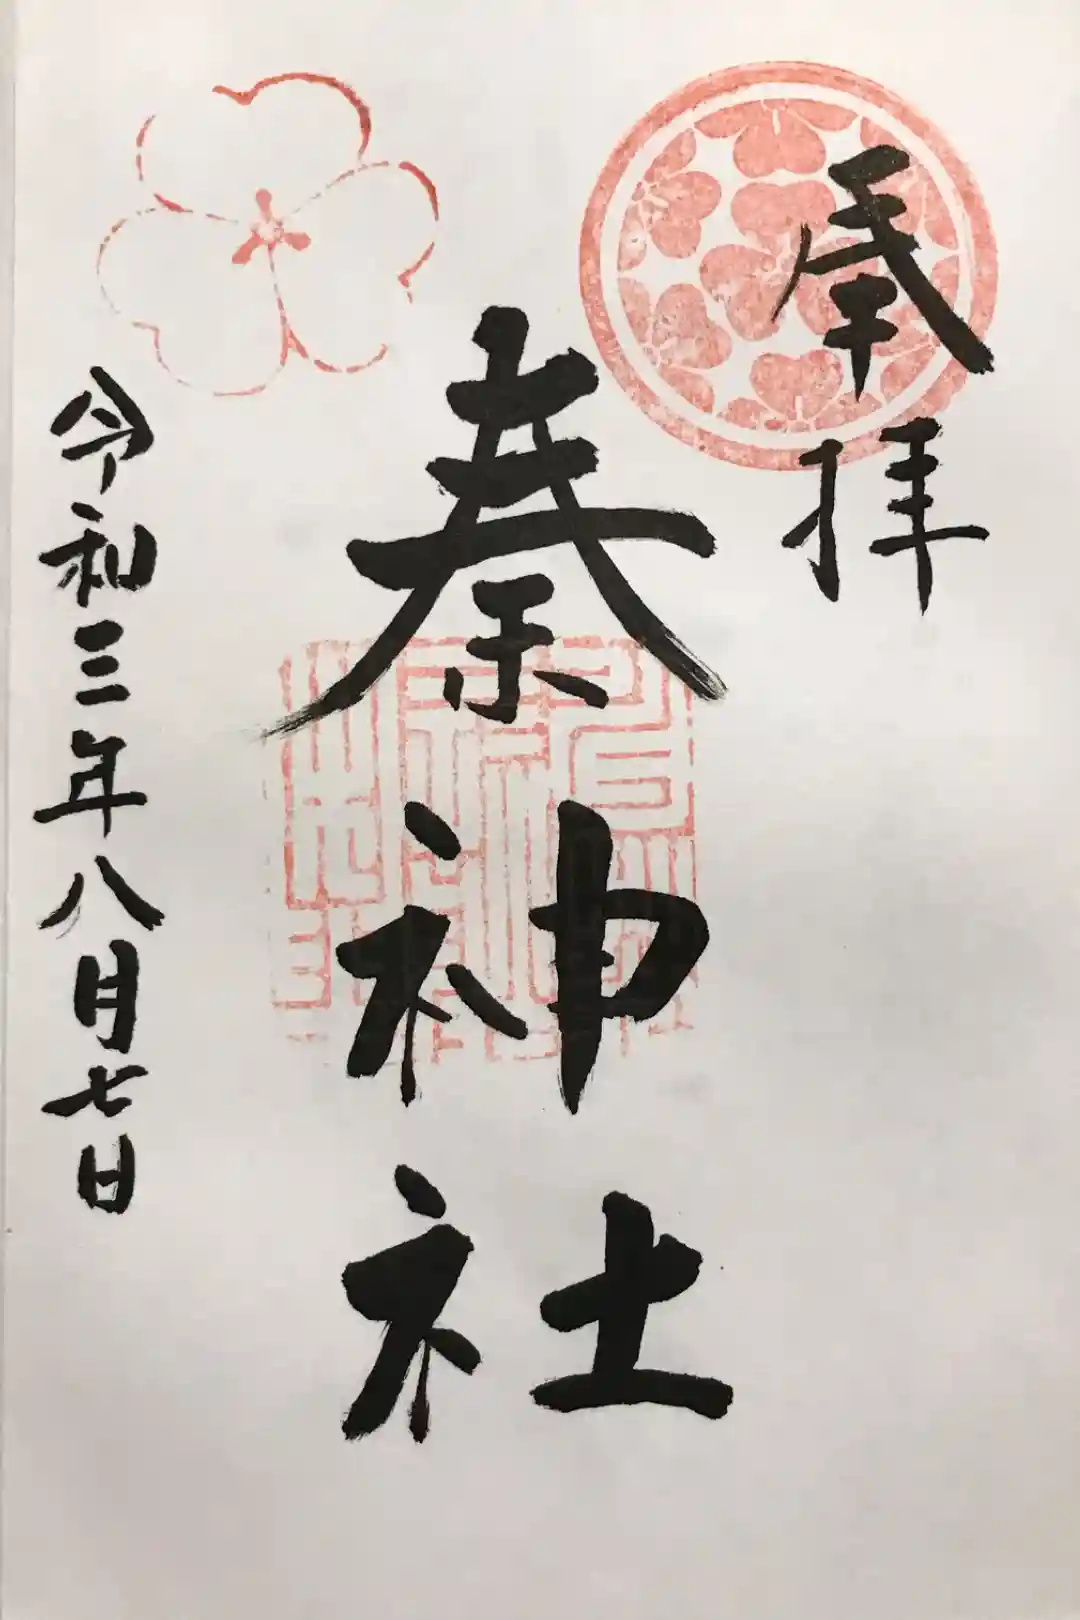 奉拝
秦神社
令和三年八月七日